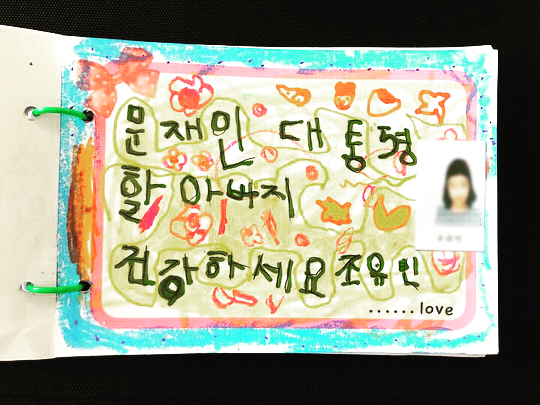 문재인 대통령
할아버지
건강하세요 조유빈
......love